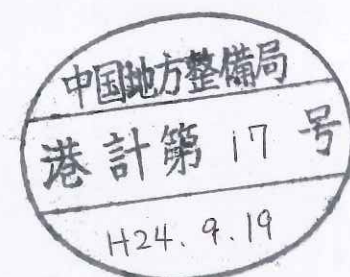 中国地方整備局
港計第 17 号
H24.9.19